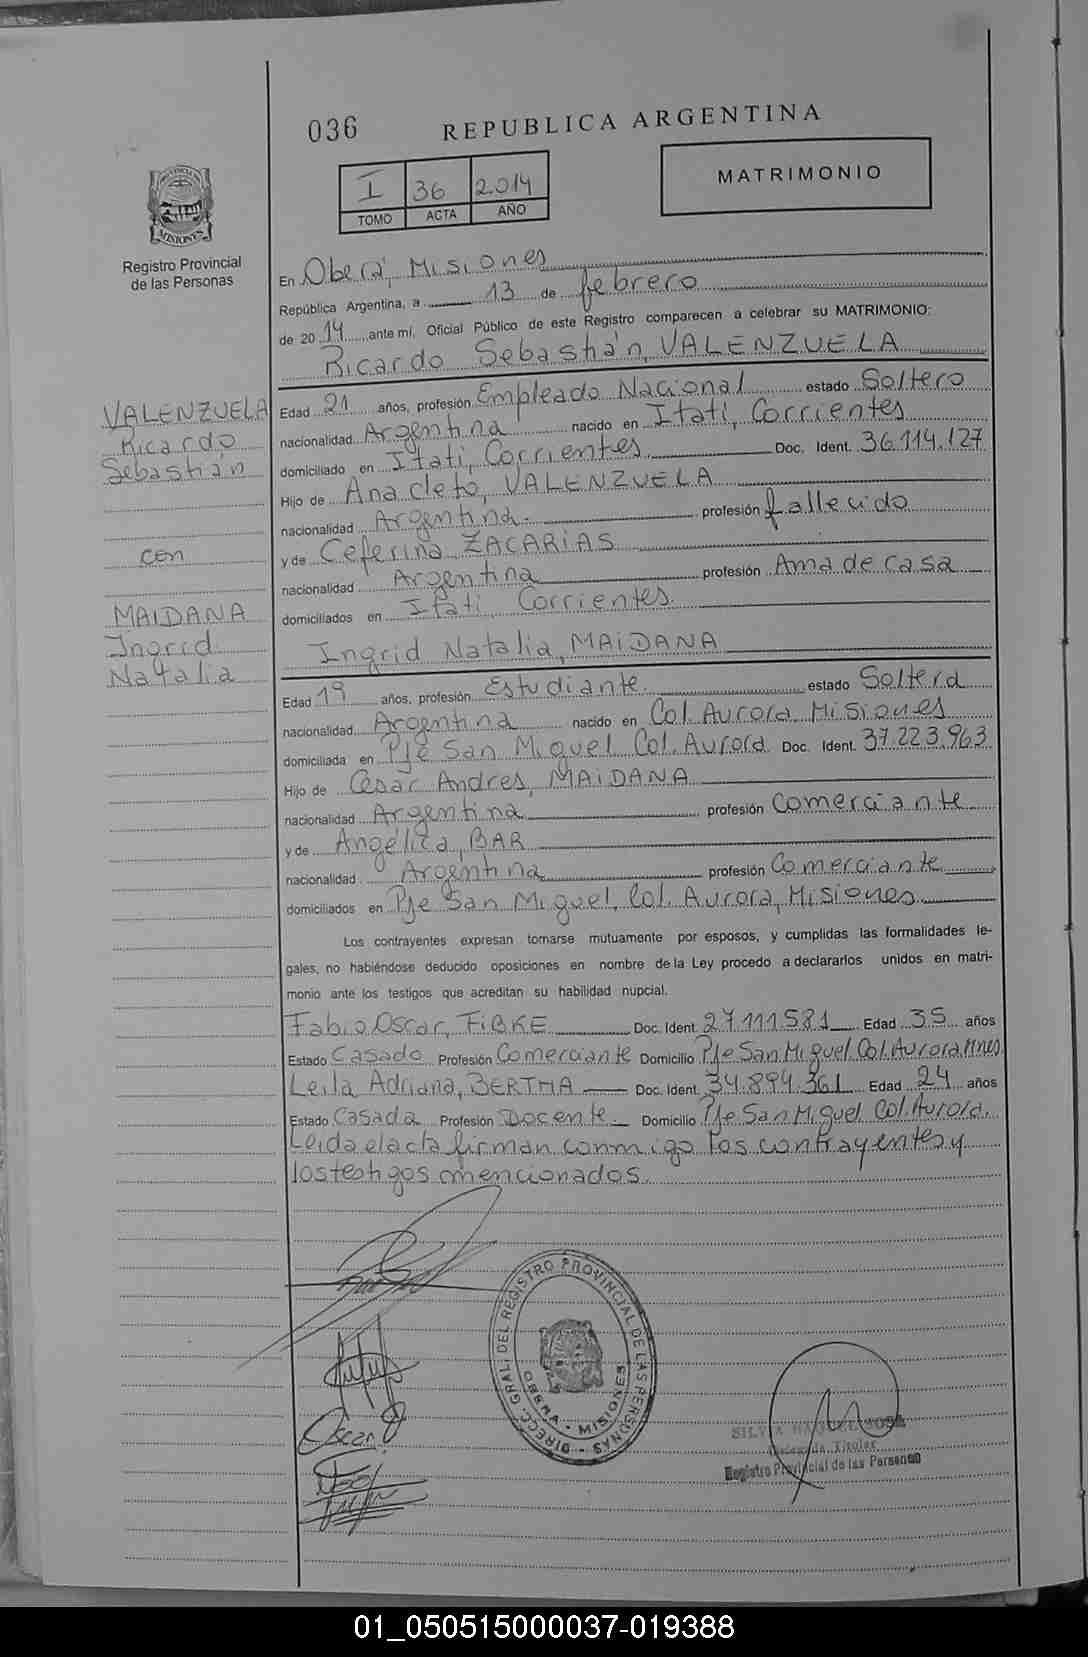 036
REPUBLICA ARGENTINA
MATRIMONIO
I 36 2.014
TOMO ACTA AÑO
MISIONES
Registro Provincial
de las Personas
En Oberá, Misiones
República Argentina, a 13 de febrero
de 20 14 ante mí, Oficial Público de este Registro comparecen a celebrar su MATRIMONIO:
Ricardo Sebastián, VALENZUELA
VALENZUELA
Ricardo
Sebastián
con
MAIDANA
Ingrid
Natalia
Edad 21 años, profesión Empleado Nacional estado Soltero
nacionalidad Argentina nacido en Itatí, Corrientes
domiciliado en Itatí, Corrientes Doc. Ident. 36.114.127
Hijo de Anacleto, VALENZUELA
nacionalidad Argentina profesión fallecido
y de Ceferina ZACARIAS
nacionalidad Argentina profesión Ama de casa
domiciliados en Itati Corrientes
Ingrid Natalia, MAIDANA
Edad 19 años, profesión Estudiante estado Soltera
nacionalidad Argentina nacido en Col. Aurora Misiones
domiciliada en Pje San Miguel Col. Aurora Doc. Ident. 37.223.963
Hijo de Cesar Andres, MAIDANA
nacionalidad Argentina profesión Comerciante
y de Angélica, BAR
nacionalidad Argentina profesión Comerciante
domiciliados en Pje San Miguel, Col. Aurora, Misiones
Los contrayentes expresan tomarse mutuamente por esposos, y cumplidas las formalidades le-
gales, no habiéndose deducido oposiciones en nombre de la Ley procedo a declararlos unidos en matri-
monio ante los testigos que acreditan su habilidad nupcial.
Fabio Oscar, FIBKE Doc. Ident. 27.111.581 Edad 35 años
Estado Casado Profesión Comerciante Domicilio Pje San Miguel Col. Aurora Mnes
Leila Adriana, BERTHA Doc. Ident. 34.894.361 Edad 24 años
Estado Casada Profesión Docente Domicilio Pje San Miguel Col. Aurora.
Leida el acta firman conmigo los contrayentes y
los testigos mencionados.
DIRECC. GRAL. DEL REGISTRO PROVINCIAL DE LAS PERSONAS
OBERA - MISIONES
Oscar
SILVIA
Titular
Registro Provincial de las Personas
01_050515000037-019388